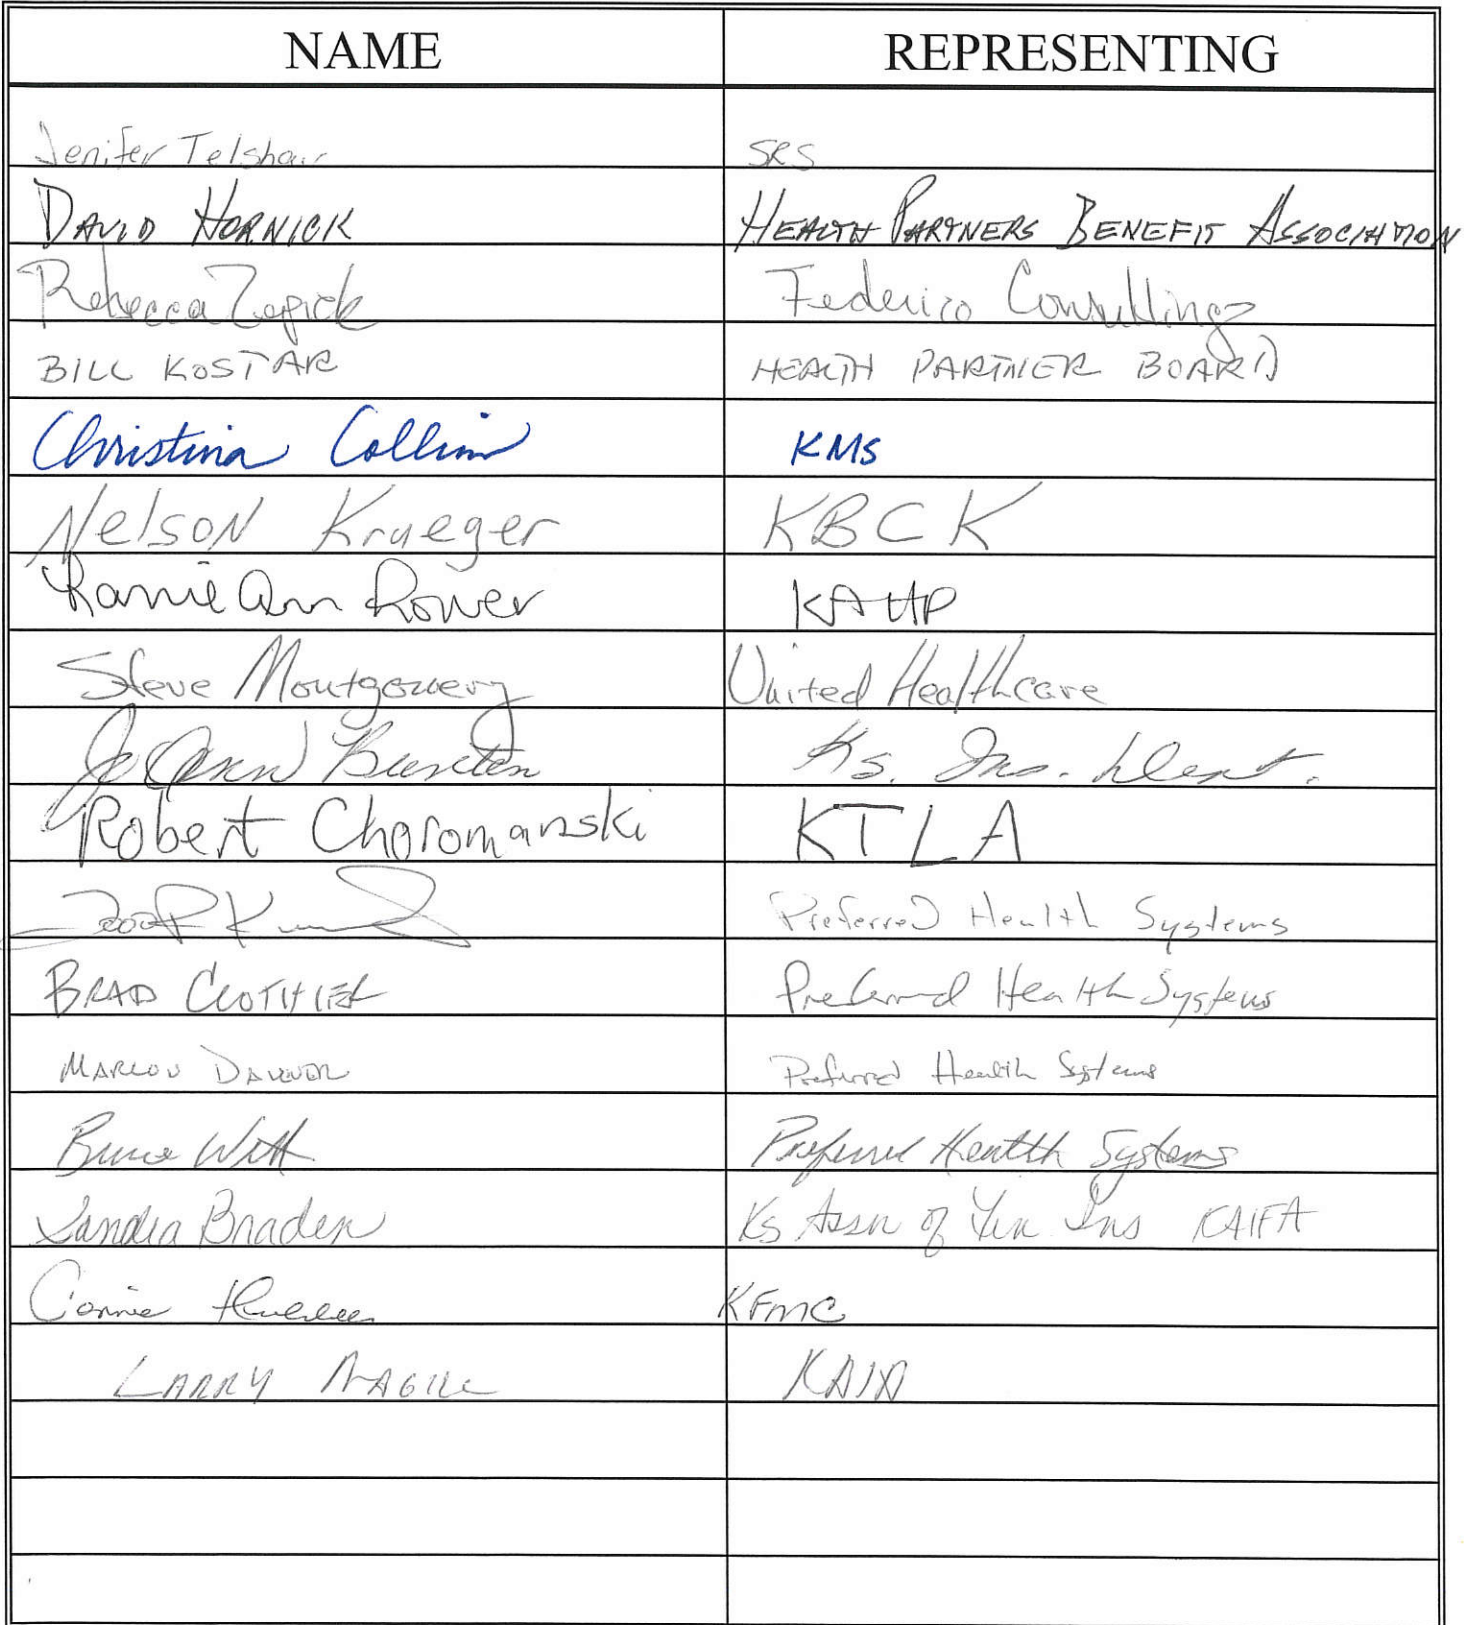 NAME REPRESENTING
Jenifer Telshaw SRS
DAVID HORNICK HEALTH PARTNERS BENEFIT ASSOCIATION
Rebecca Zepick Federico Consulting
BILL KOSTAR HEALTH PARTNER BOARD
Christina Collins KMS
Nelson Krueger KBCK
Ann Rower KAHP
Steve Montgomery United Healthcare
JoAnn Bunten Ks. Ins. Dept.
Robert Choromanski KTLA
Preferred Health Systems
BRAD CLOTHIER Preferred Health Systems
MARLON Preferred Health Systems
Bruce Witt Preferred Health Systems
Sandra Braden Ks Assn of Fin Ins KAIFA
Connie KFMC
LARRY MAGILL KAIA